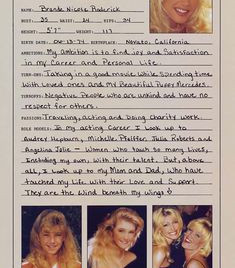 NAME: Brande Nicole Roderick
BUST: 35 WAIST: 24 HIPS: 34
HEIGHT: 5'7" WEIGHT: 113
BIRTH DATE: 06-13-74 BIRTHPLACE: Novato, California
AMBITIONS: My Ambition is to find joy and Satisfaction
in my Career and Personal Life.
TURN-ONS: Taking in a good movie while Spending time
with Loved ones and My Beautiful Puppy Mercedes.
TURNOFFS: Negative People who are unkind and have no
respect for others.
PASSIONS: Traveling, acting and Doing Charity work.
ROLE MODELS: In my acting Career I Look up to
Audrey Hepburn, Michelle Pfeiffer, Julia Roberts and
Angelina Jolie - Women who touch so many Lives,
Including my own, with their talent. But, above
all, I Look up to my Mom and Dad, who have
touched my Life with their Love and Support.
They are the Wind beneath my wings